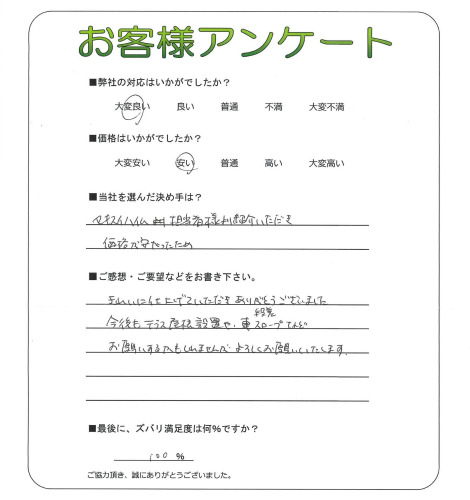 お客様アンケート
■弊社の対応はいかがでしたか？
大変良い 良い 普通 不満 大変不満
■価格はいかがでしたか？
大変安い 安い 普通 高い 大変高い
■当社を選んだ決め手は？
セキスイハイム 担当者様より紹介いただき
価格が安かったため
■ご感想・ご要望などをお書き下さい。
きれいに仕上げていただきありがとうございました
今後もテラス屋根設置や、車スロープ 段差 など
お願いするかもしれませんが よろしくお願いいたします。
■最後に、ズバリ満足度は何%ですか？
100 %
ご協力頂き、誠にありがとうございました。